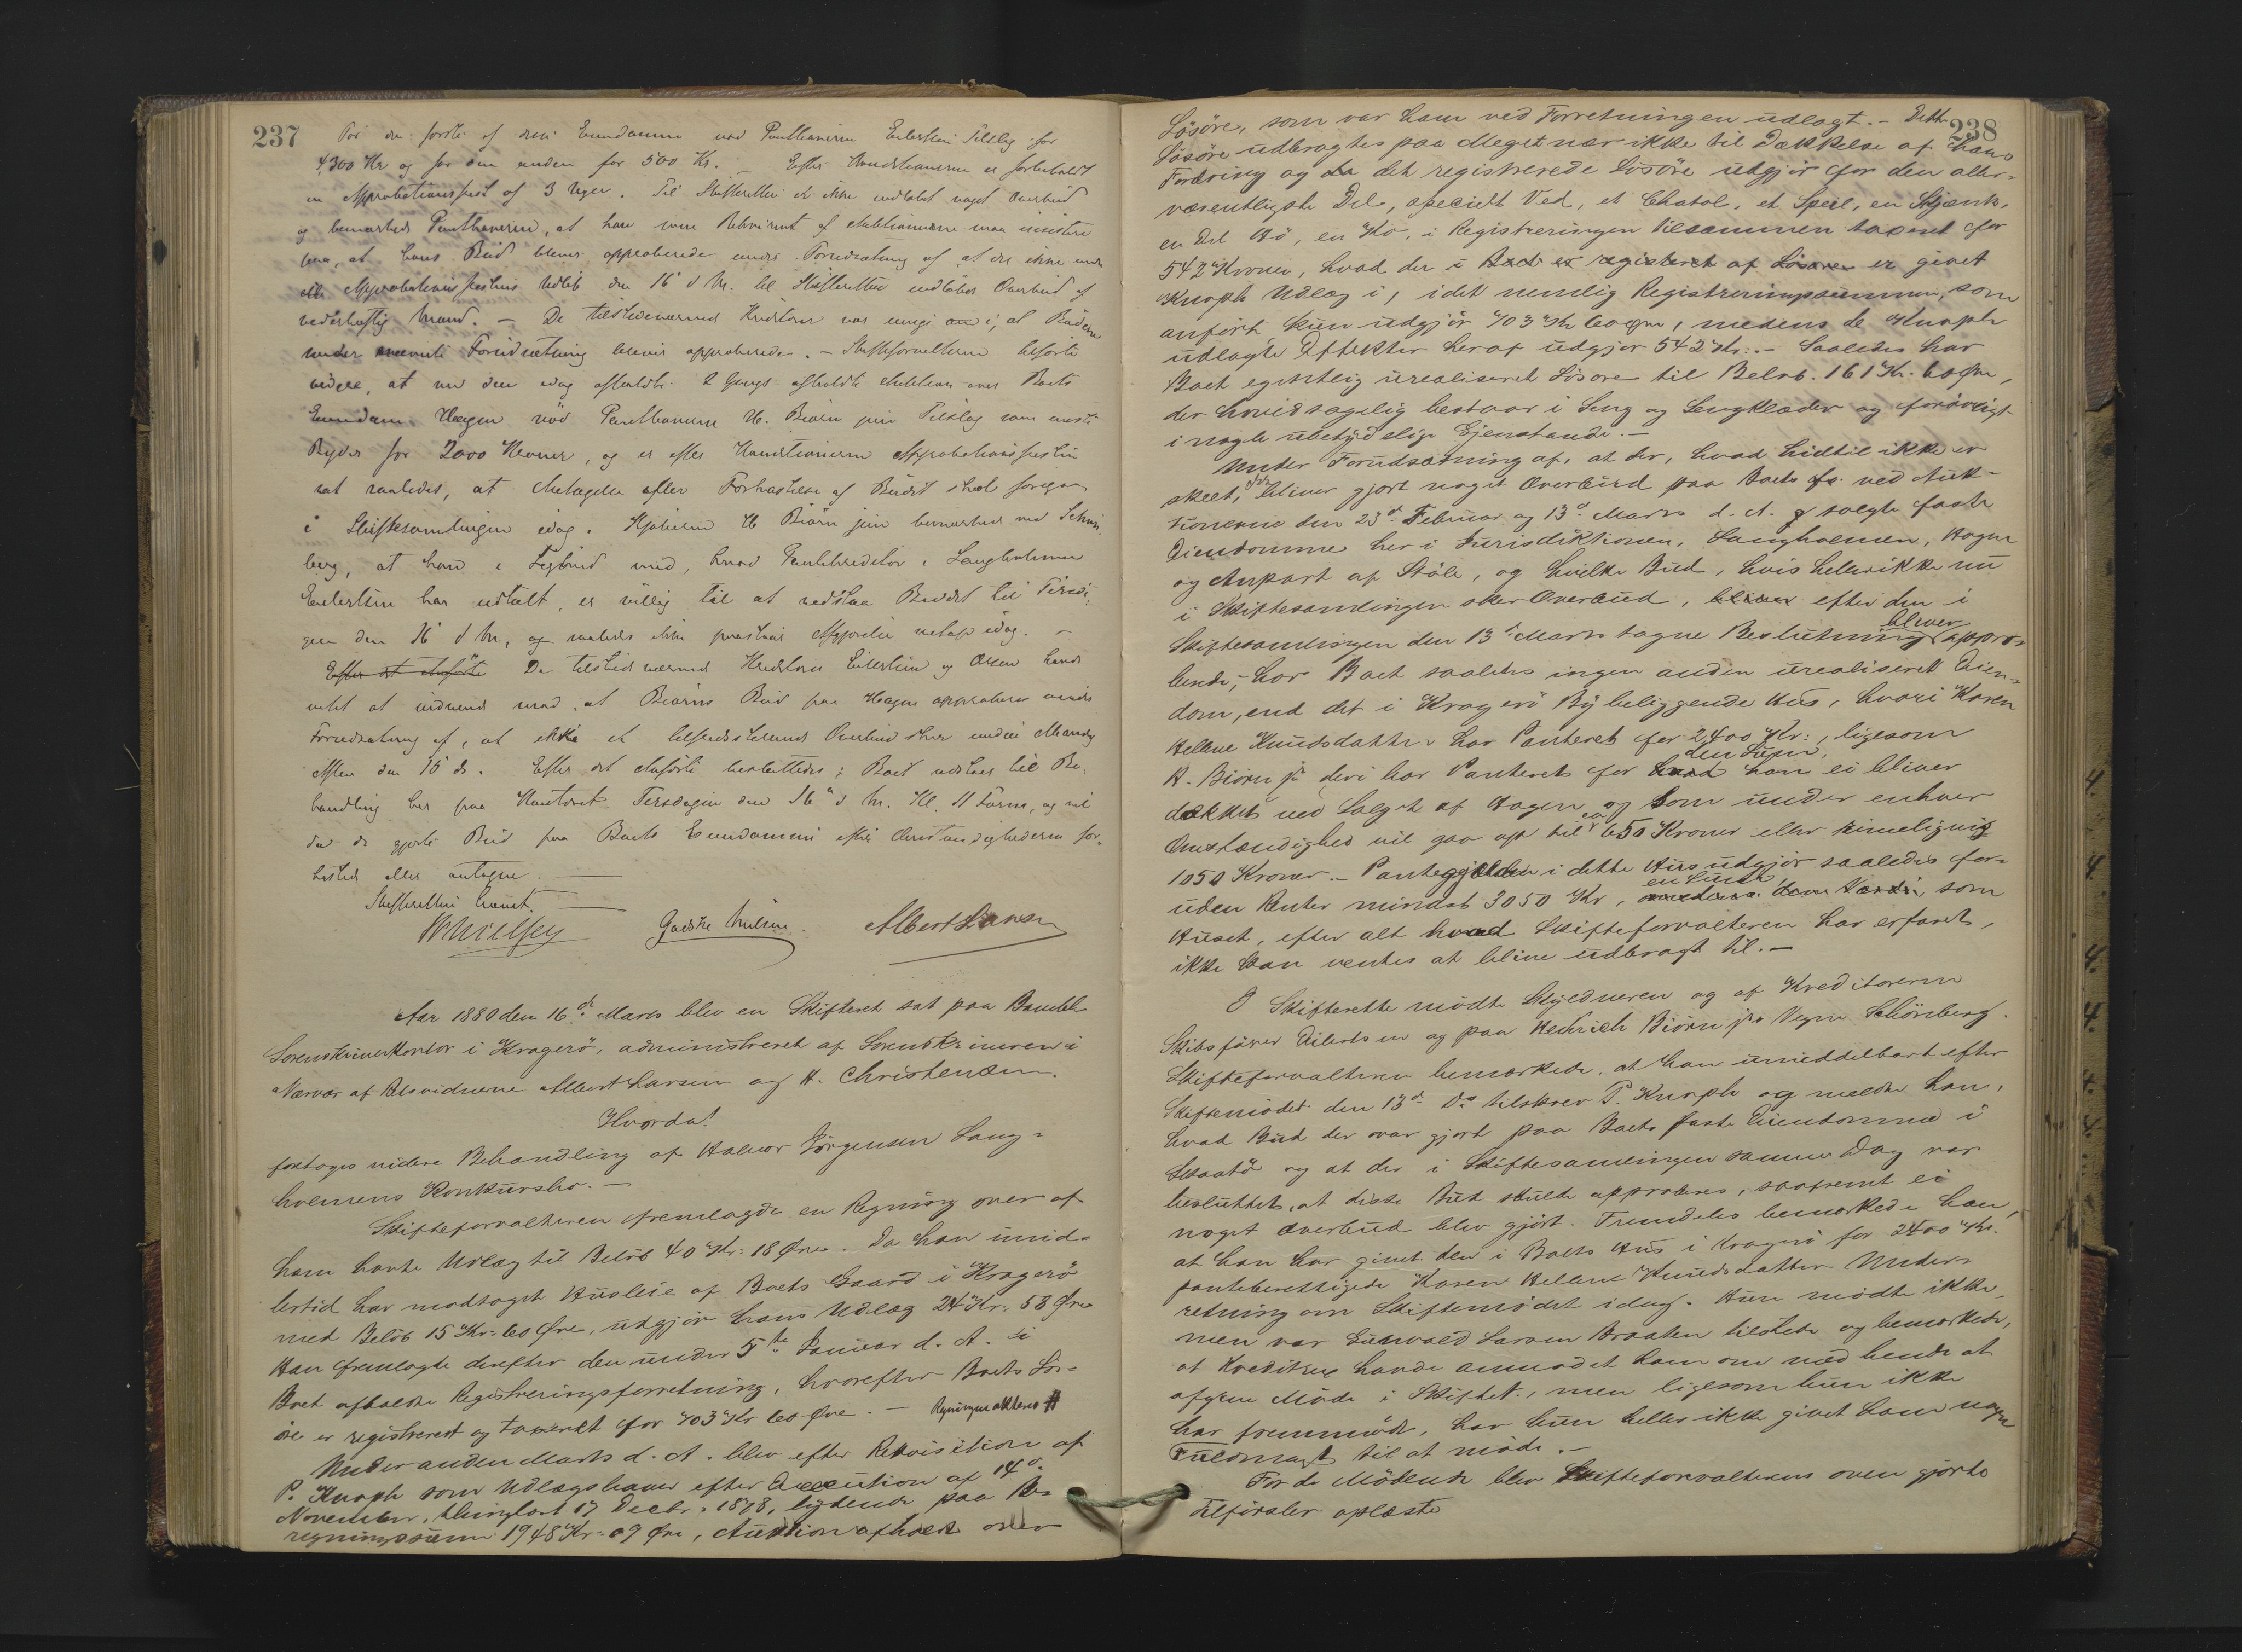 237
For den første af disse Eiendomme nød Panthaveren Eilertsen Tilslag for
4,300 Kr og for den anden for 500 Kr. Efter Konditionerne er forbeholdt
en Approbationsfrist af 3 Uger. Til Skifteretten er ikke indløbet noget Overbud
og bemærkede Panthaveren, at han som Rekvirent af Auktionerne maa insistere
paa, at hans Bud bliver approberede under Forudsætning af at der ikke inden
Approbationsfristens Udløb den 16 d M. til Skifteretten indløber Overbud af
vederhæftig Mand. — De tilstedeværende Kreditorer var enige i, at Budene
under nævnte Forudsætning blever approberede. — Skifteforvalteren tilførte
videre, at ved den idag afholdte 2 Gangs afholdte Auktion over Boets
Eiendom Hagen nød Panthaveren H. Biørn jun Tilslag som meste
Byder for 2000 Kroner, og er efter Konditionerne Approbationsfristen
sat saaledes, at Antagelse eller Forkastelse af Budet skal foregaa
i Skiftesamlingen idag. Kjøberen H Biørn jun bemærkede ved Schøn-
berg, at han i Lighed med, hvad Pantekreditor i Langholmen
Eilertsen har udtalt, er villig til at vedstaa Budet til Tirsda-
gen den 16 d M, og saaledes ikke paastaar Afgjørelse netop idag. —
Efter det Anførte De tilstedeværende Kreditorer Eilertsen og Olsen havde
intet at indvende mod, at Biørns Bud paa Hagen approberes under
Forudsætning af, at ikke et tilfredsstillende Overbud sker inden Mandag
Aften den 15 ds. Efter det Anførte besluttedes: Boet udstaar til Be-
handling her paa Kontoret Tirsdagen den 16 d M. Kl. 11 Form, og vil
da de gjorte Bud paa Boets Eiendomme efter Omstændighederne for-
kastes eller antagne. —
Skifteretten hævet. —
Albert Larsen
Aar 1880 den 16de Marts blev en Skifteret sat paa Bamble
Sorenskriverkontor i Kragerö, administreret af Sorenskriveren i
Nærvær af Retsvidnerne Albert Larsen og H. Christensen.
Hvorda!
foretoges videre Behandling af Halvor Jörgensen Lang-
holmens Konkursbo. —
Skifteforvalteren fremlagde en Regning over af
ham havte Udlæg til Beløb 40 Kr: 18 Øre. Da han imid-
lertid har modtaget Husleie af Boets Gaard i Kragerö
med Beløb 15 Kr: 60 Øre, udgjör hans Udlæg 24 Kr: 58 Øre
Han fremlagte derefter den under 5te Januar d. A. i
Boet afholdte Registreringsforretning, hvorefter Boets Lös-
öre er registreret og taxeret for 703 Kr 60 Øre. — Regningen akteres #
Under anden Marts d. A. blev efter Rekvisition af
P. Knaph som Udlægshaver efter Execution af 14d
November, thinglæst 17 Decbr. 1878, lydende paa Be-
regningssum 1948 Kr: 09 Øre, Auktion afholdt over
238
Lösöre, som var ham ved Forretningen udlagt. — Dette
Lösöre udbragtes paa Meget nær ikke til Dækkelse af hans
Fordring og da det registrerede Lösöre udgjör for den aller-
væsentligste Del, specielt Ved, et Chatol, et Speil, en Skjænk,
en Del Hö, en Ko, i Registreringen tilsammen taxeret for
542 Kroner, hvad der i Boet er registreret af Lösöre er givet
Knaph Udlæg i, idet nemlig Registreringssummen, som
anfört kun udgjör 703 Kr 60 Øre, medens de Knaph
udlagte Effekter heraf udgjör 542 Kr: — Saaledes har
Boet egentlig urealiseret Lösöre til Belöb. 161 Kr. 60 Øre,
der hovedsagelig bestaar i Seng og Sengklæder og forövrigt
i nogle ubetydelige Gjenstande. —
Under Forudsætning af, at der, hvad hidtil ikke er
skeet, bliver gjort noget Overbud paa Boets ved Auk-
tionerne den 23d Februar og 13d Marts d. A. solgte faste
Eiendomme her i Jurisdiktionen, Langholmen, Hagen
og Anpart af Stöle, og hvilke Bud, hvis hellerikke nu
i Skiftesamlingen sker Overbud, bliver efter den i
Skiftesamlingen den 13d Marts tagne Beslutning bliver appro-
berede, har Boet saaledes ingen anden urealiseret Eien-
dom, end det i Kragerö By beliggende Hus, hvori Karen
Hellene Knudsdatter har Panteret for 2,400 Kr:, ligesom
H. Biörn jr deri har Panteret for hvad den Sum, ham ei bliver
dækket ved Salget af Hagen og som under enhver
Omstændighed vil gaa op til ca 650 Kroner eller rimeligvis
1050 Kroner. — Pantegjælden i dette Hus udgjör saaledes for-
uden Renter mindst 3050 Kr, en Sum som
Huset, efter alt hvad Skifteforvalteren har erfaret,
ikke kan ventes at blive udbragt til. —
I Skifteretten mödte Skyldneren og af Kreditorerne
Skibsförer Eilertsen og paa Hedrich Biörn jrs Vegne Schönberg.
Skifteforvalteren bemærkede, at han umiddelbart efter
Skiftemödet den 13d ds tilskrev P. Knaph og meldte ham,
hvad Bud der var gjort paa Boets faste Eiendomme i
Skaatö og at der i Skiftesamlingen samme Dag var
besluttet, at disse Bud skulde approberes, saafremt ei
noget Overbud blev gjört. Fremdeles bemærkede han,
at han har givet den i Boets Hus i Kragerö for 2400 Kr.
panteberettigede Karen Hellene Knudsdatter Under-
retning om Skiftemödet idag. Hun mödte ikke,
men var Gunvald Larsen Braaten tilstede og bemærkede,
at Kreditrix havde anmodet ham om med hende at
afgive Möde i Skiftet, men ligesom hun ikke
har fremmödt, har hun heller ikke givet ham nogen
Fuldmagt til at möde. —
For de Mödende blev Skifteforvalterens oven gjorte
Tilförsler oplæste